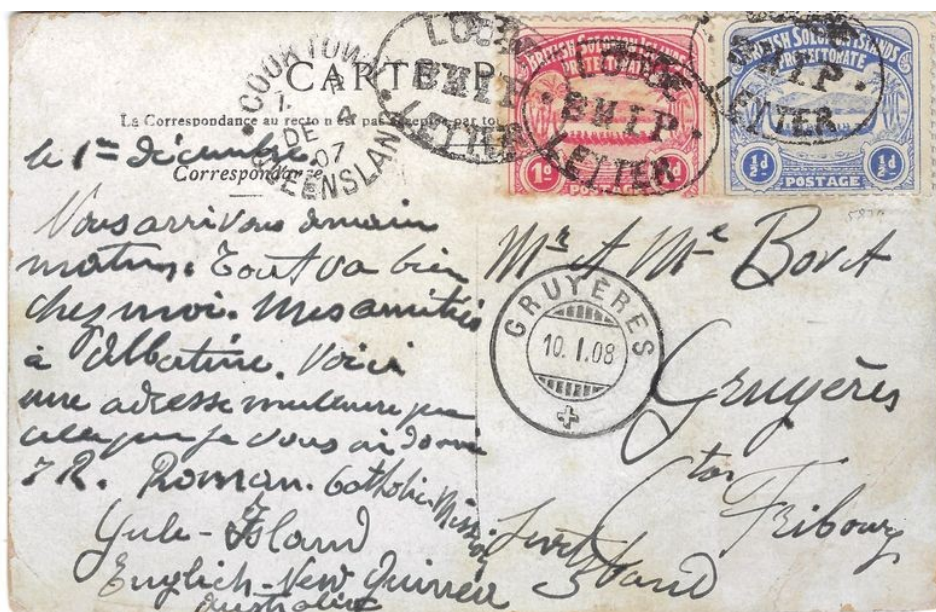 CARTE P
La Correspondance au recto n'est pas acceptée par to
Correspondance
COOKTOWN
DE 4
07
QUEENSLAN
LOOSE
SHIP
LETTER
LOOSE
SHIP
LETTER
SHIP
LETTER
BRITISH SOLOMON ISLANDS
PROTECTORATE
1d
POSTAGE
BRITISH SOLOMON ISLANDS
PROTECTORATE
½d ½d
POSTAGE
le 1er décembre
Nous arrivons demain
matin. Tout va bien
chez moi. Mes amitiés
à Albertine. Voici
une adresse meilleure que
celle que je vous ai donné
J R. Roman. Catholic Mission
Yule-Island
English-New Guinea
Australie
Mr & Me Bovet
Gruyères
ton Fribourg
GRUYÈRES
10. I. 08